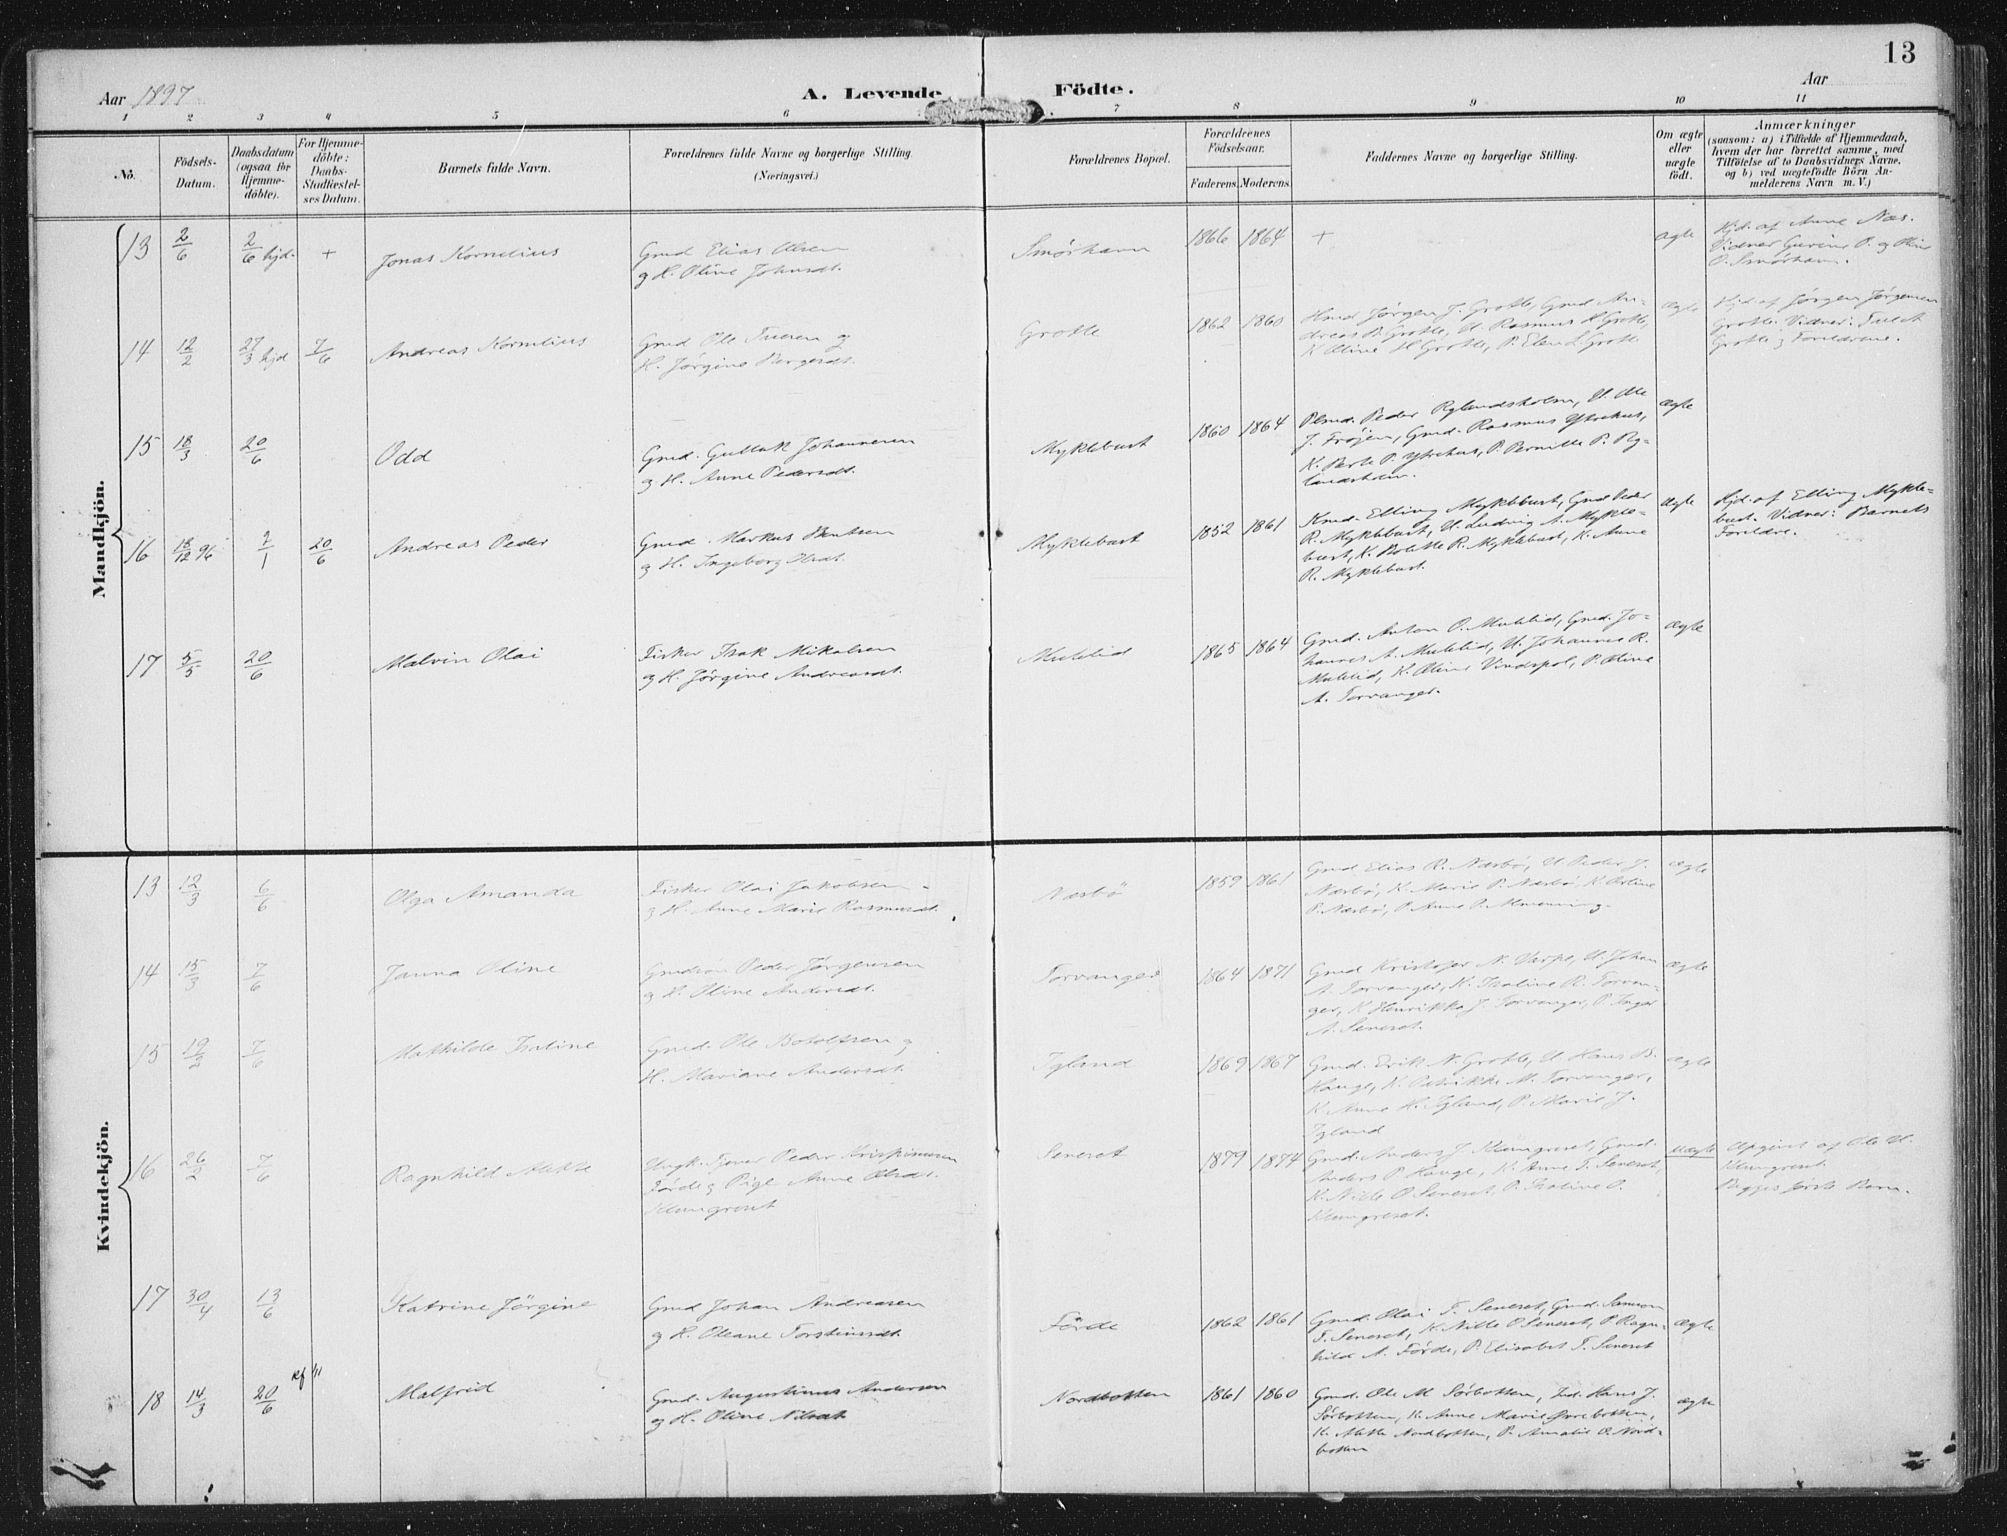 13
Aar 1897
A. Levende Födte.
Aar
1 2 3 4 5 6 7 8 9 10 11
No.
Födsels-Datum.
Daabsdatum (ogsaa for Hjemme-döbte).
For Hjemme-döbte: Daabs-Stadfæstel-ses Datum.
Barnets fulde Navn.
Forældrenes fulde Navne og borgerlige Stilling.
(Næringsvei.)
Forældrenes Bopæl.
Forældrenes Födselsaar.
Faderens. Moderens.
Faddernes Navne og borgerlige Stilling.
Om ægte eller uægte födt.
Anmærkninger
(saasom: a) i Tilfælde af Hjemmedaab, hvem der har forrettet samme, med Tilföielse af to Daabsvidners Navne, og b) ved uægtefödte Börn An-melderens Navn m. V.)
Mandkjön.
13 2/6 2/6 hjd. + Jonas Kornelius
Gmd Elias Olsen
og H. Oline Johnsdt.
Smørhavn 1866 1864 + ægte
Hjd. af Anne Næs.
Vidner Gurine P. og
O. Smørhavn.
14 12/2 27/3 hjd 7/6 Andreas Kornelius
Gmd Ole Tuesen og
H. Jørgine Børgesdt.
Grotle 1862 1860
Hmd Jørgen J. Grotle, Gmd An-
dreas B. Grotle, U. Rasmus H Grotle,
K. Oline H Grotle, P. Elen L Grotle
ægte
Hjd. af Jørgen Jørgensen
Grotle. Vidner: Tue A
Grotle og Forældrene.
15 18/3 20/6 Odd
Gmd. Gullak Johannesen
og H. Anne Pedersdt.
Myklebust 1860 1864
Peder Rylandsholm, U. Ole
J. Frøjen, Gmd. Rasmus Ytrehus,
K. Berte P. Ytrehus, P. Pernille P. Ry-
landsholm.
ægte
16 18/12 96 2/1 20/6 Andreas Peder
Gmd. Markus Bentsen
og H. Ingeborg Olsdt.
Myklebust 1852 1861
Kmd. Elling Myklebust, Gmd Peder
R. Myklebust, U. Ludvig A. Mykle-
bust, K. Bolette R. Myklebust, K. Anne
R. Myklebust.
ægte
Hjd. af Elling Mykle-
bust. Vidner: Barnets
Forældre.
17 5/5 20/6 Malvin Olai
Fisker Isak Mikalsen
og H. Jørgine Andreasdt.
Mulelid 1865 1864
Gmd. Anton O. Mulelid, Gmd. Jo-
hannes A. Mulelid, U. Johannes R.
Mulelid, K. Oline Vindspol, P. Oline
A. Torvanger.
ægte
Kvindekjön.
13 12/3 6/6 Olga Amanda
Fisker Olai Jakobsen
og H. Anne Marie Rasmusdt.
Næsbø 1859 1861
Gmd Elias R. Næsbø, U. Peder J.
Næsbø, K. Marie P. Næsbø, K.
P. Næsbø, P. Anne P. Almenning.
ægte
14 15/3 7/6 Janna Oline
Gmdssøn Peder Jørgensen
og H. Oline Andersdt.
Torvanger 1864 1871
Gmd Kristofer N. Varpe, U. Johan
A. Torvanger, K. Isaline R. Torvan-
ger, K. Henrikke J. Torvanger, P. Inger
A. Seneset.
ægte
15 19/2 7/6 Mathilde Isaline
Gmd. Ole Botolfsen og
H. Mariane Andersdt.
Igland 1869 1867
Gmd. Erik N. Grotle, U. Hans B.
Hauge, K. Petrikke M. Torvanger,
K. Anne H. Igland, P. Marie J.
Igland
ægte
16 26/2 7/6 Ragnhild Mekke
Ungk. Tjener Peder Kristiansen
Førde og Pige Anne Olsdt.
Klungreset
Seneset 1879 1874
Gmd. Anders J. Klungreset, Gmd.
Anders P. Hauge, K. Anne T. Seneset,
K. Nille O. Seneset, P. Isaline O.
Klungreset.
uægte
Opgivet af Ole U.
Klungreset.
Begges første Barn.
17 30/4 13/6 Katrine Jørgine
Gmd Johan Andreasen
og H. Oleane Torstinusdt.
Førde 1862 1861
Gmd. Olai T. Seneset, Gmd. Samson
T. Seneset, K. Nille O. Seneset, P. Ragn-
hild A. Førde, P. Elisabet T. Seneset
ægte
18 14/3 20/6 Malfrid
Gmd. Augustinus Andersen
og H. Oline Nilsdt.
Nordbotten 1861 1860
Gmd. Ole M. Sørbotten, Ind. Hans J.
Sørbotten, K. Anne Marie Øvrebotten,
K. Mekke Nordbotten, P. Amalie O. Nord-
botten
ægte